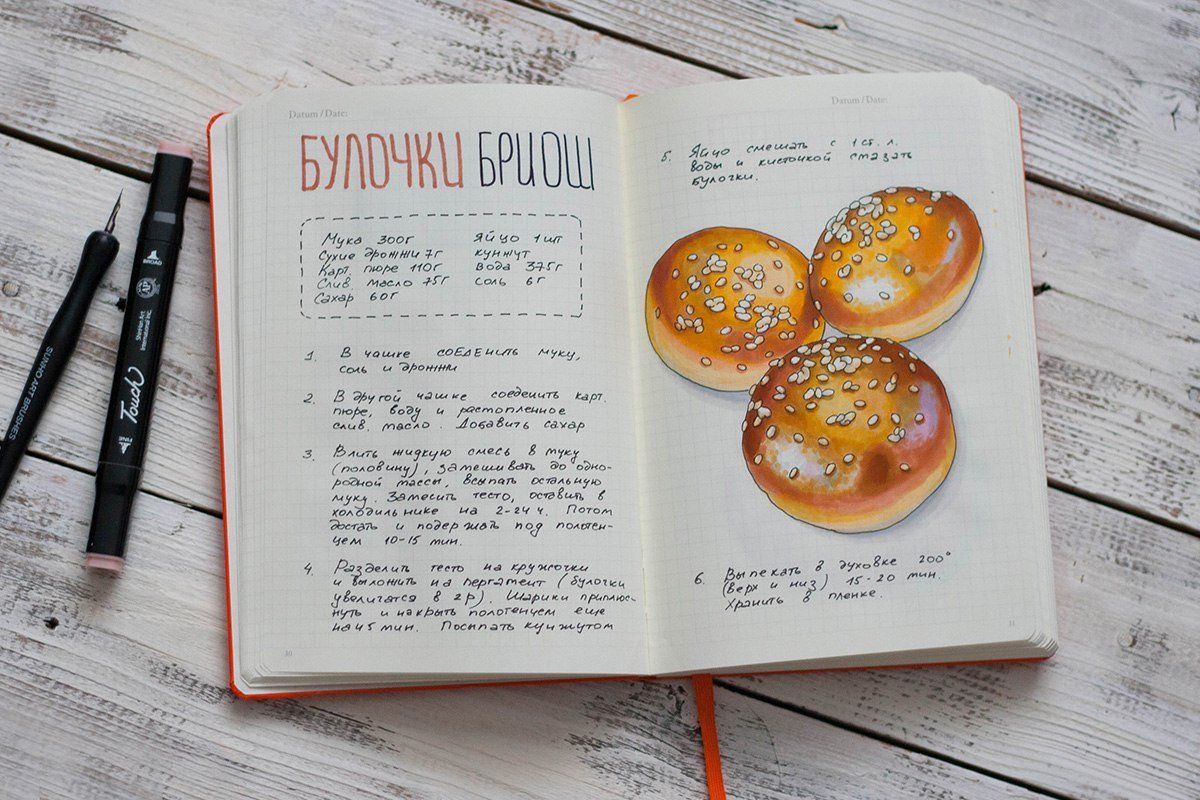 Datum / Date:
БУЛОЧКИ БРИОШ
Мука 300г
Сухие дрожжи 7г
Карт. пюре 110г
Слив. масло 75г
Сахар 60г
Яйцо 1шт
кунжут
Вода 375г
Соль 6г
1. В чашке соеденить муку,
соль и дрожжи
2. В другой чашке соеденить карт.
пюре, воду и растопленное
слив. масло. Добавить сахар
3. Влить жидкую смесь в муку
(половину), замешивать до одно-
родной массы, всыпать остальную
муку. Замесить тесто, оставить в
холодильнике на 2-24 ч. Потом
достать и подержать под полотен-
цем 10-15 мин.
4. Разделить тесто на кружочки
и выложить на пергамент (булочки
увеличатся в 2р). Шарики приплюс-
нуть и накрыть полотенцем еще
на 45 мин. Посыпать кунжутом
30
Datum / Date:
5. Яйцо смешать с 1 ст. л.
воды и кисточкой смазать
булочки.
6. Выпекать в духовке 200°
(верх и низ) 15-20 мин.
Хранить в пленке.
31
SUNHO ART BRUSHES
BROAD
AP
ShinHan Art
International Inc.
Touch
FINE